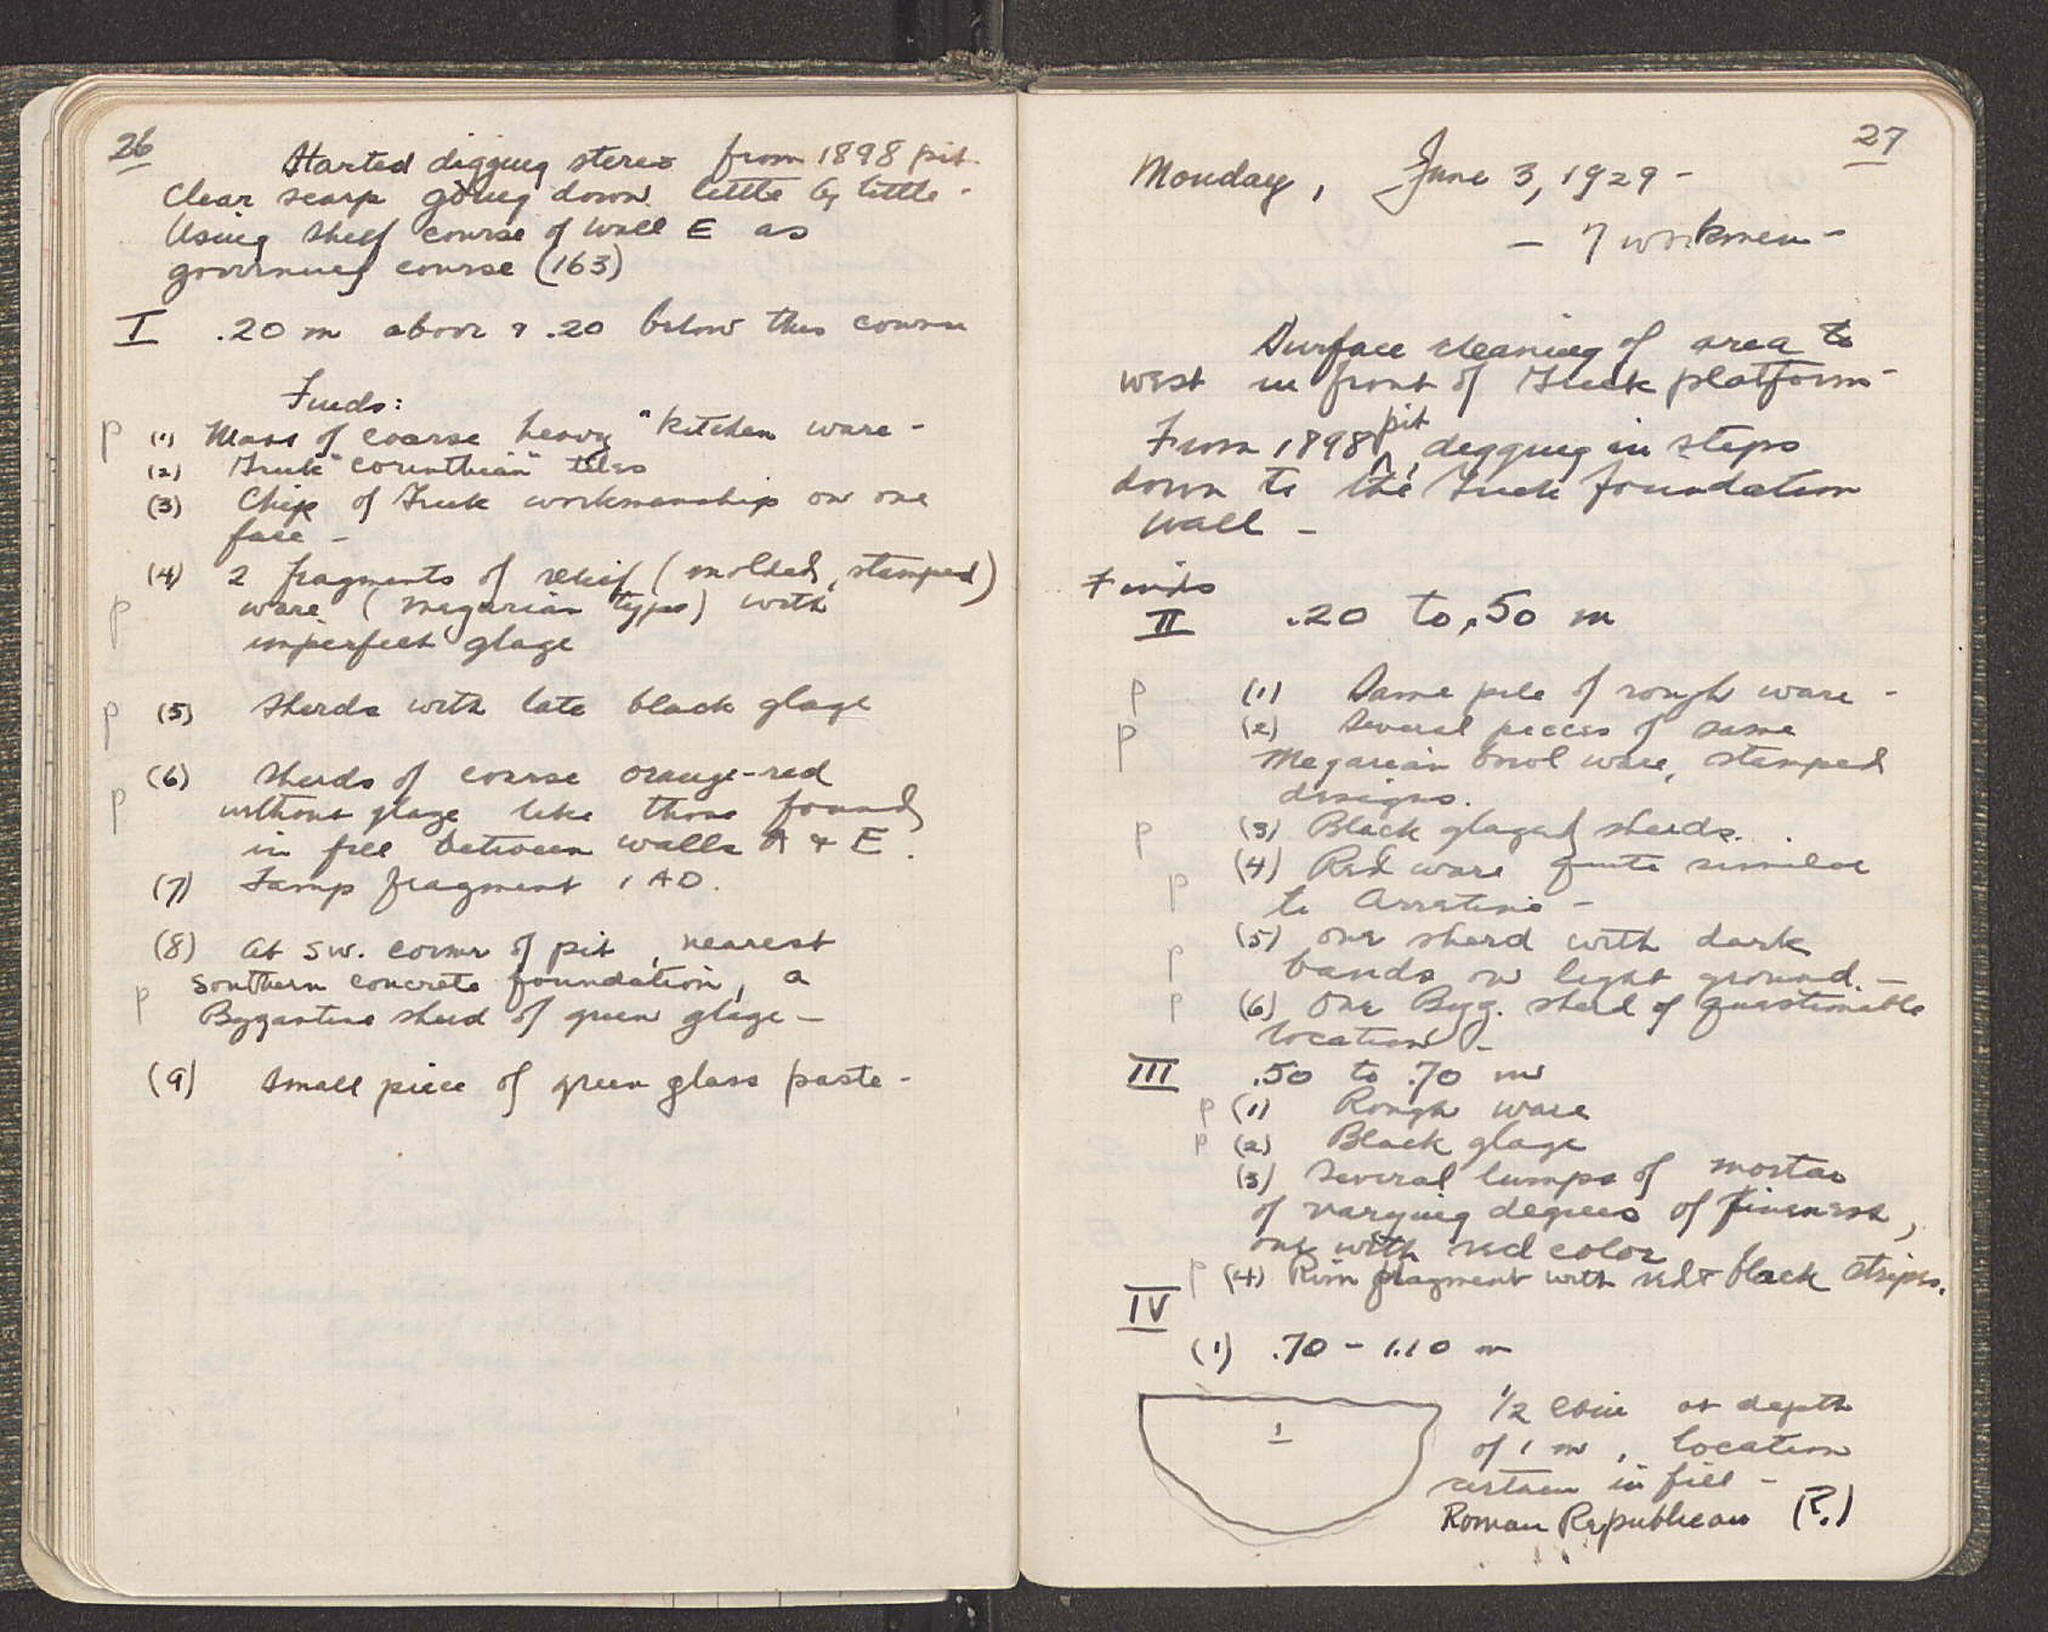 26
Started digging stereo from 1898 pit.
Clear scarp going down little by little -
Using shelf course of wall E as
governing course (163)
I .20 m above & .20 below this course
Finds:
p (1) Mass of coarse heavy "kitchen ware -
(2) Greek "Corinthian" tiles
(3) Chip of Greek workmanship on one
face -
(4) 2 fragments of relief (molded, stamped)
p ware (Megarian type) with
imperfect glaze
p (5) Sherds with late black glaze
(6) Sherds of coarse orange-red
p without glaze like those found
in fill between walls A & E.
(7) Lamp fragment 1 AD.
(8) At SW. corner of pit, nearest
p Southern concrete foundation, a
Byzantine sherd of green glaze -
(9) Small piece of green glass paste -
27
Monday, June 3, 1929 -
- 7 workmen -
Surface cleaning of area to
west in front of Greek platform -
From 1898 pit, digging in steps
down to the Greek foundation
wall -
Finds
II .20 to .50 m
p (1) Same pile of rough ware -
p (2) Several pieces of same
Megarian bowl ware, stamped
designs.
p (3) Black glazed sherds.
p (4) Red ware quite similar
to Arretine -
(5) one sherd with dark
p bands on light ground. -
p (6) One Byz. sherd of questionable
location -
III .50 to .70 m
p (1) Rough ware
p (2) Black glaze
(3) Several lumps of mortar
of varying degrees of fineness,
one with red color
p (4) Rim fragment with red & black stripes.
IV
(1) .70 - 1.10 m
1
1/2 Coin at depth
of 1 m, location
certain in fill -
Roman Republican (?)